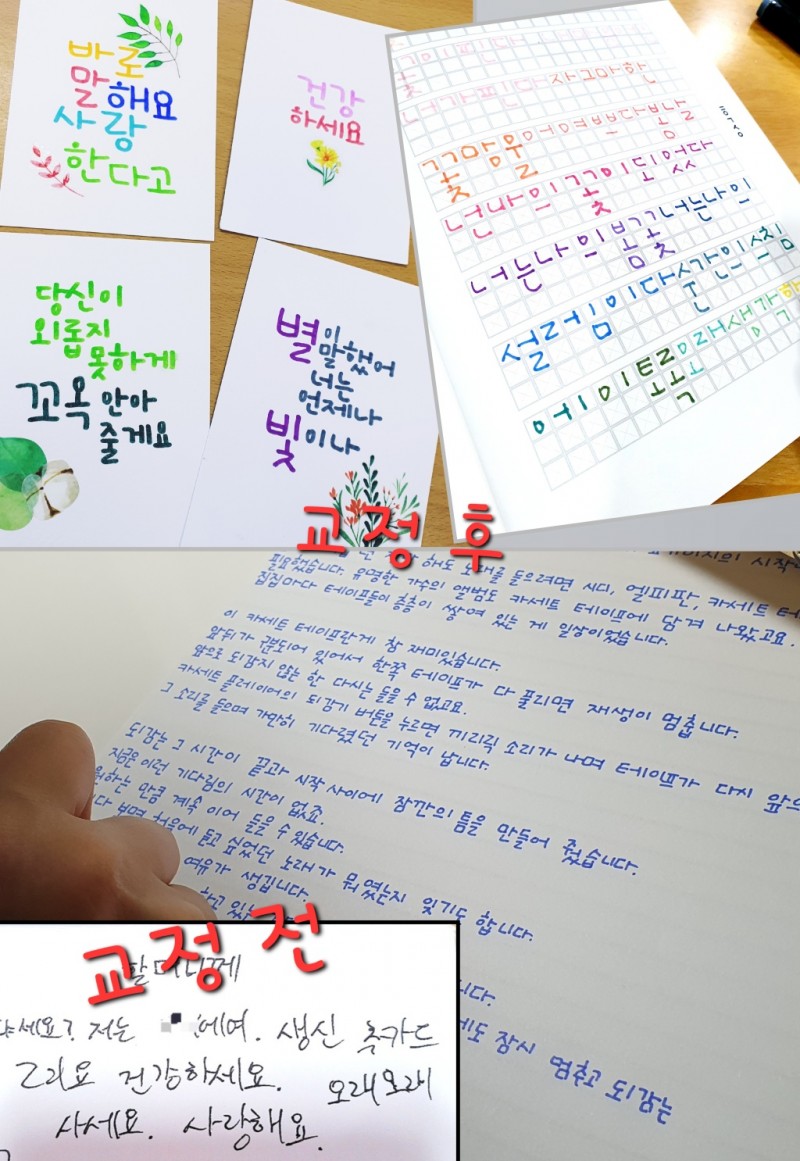 바로
말해요
사랑
한다고
건강
하세요
꽃이핀다
너가핀다 자그마한
꽃망울 어여쁘다 봄날
넌 나의 꽃이 되었다
너는 나의 봄꽃 너는 나의
설레임이다 순간의 설침
어이 이토록 오래 생각하
당신이
외롭지
못하게
꼬옥 안아
줄게요
별이
말했어
너는
언제나
빛이나
교정 후
해도 노래를 들으려면 시디, 엘피판, 카세트 테
필요했습니다. 유명한 가수의 앨범도 카세트 테이프에 담겨 나왔고요.
집집마다 테이프들이 층층이 쌓여 있는 게 일상이었습니다.
이 카세트 테이프란게 참 재미있습니다.
앞뒤가 구분되어 있어서 한쪽 테이프가 다 풀리면 재생이 멈춥니다.
앞으로 되감지 않는 한 다시는 들을 수 없고요.
카세트 플레이어의 되감기 버튼을 누르면 끼리릭 소리가 나며 테이프가 다시 앞으
그 소리를 들으며 가만히 기다렸던 기억이 납니다.
되감는 그 시간이 끝과 시작 사이에 잠깐의 틈을 만들어 줬습니다.
지금은 이런 기다림의 시간이 없죠.
원하는 만큼 계속 이어 들을 수 있습니다.
다 보면 처음에 듣고 싶었던 노래가 뭐였는지 잊기도 합니다.
여유가 생깁니다.
하고 있는
니다.
에도 잠시 멈추고 되감는
교정 전
할머니께
하세요? 저는 에여. 생신 축카드
그리요 건강하세요. 오래오래
사세요. 사랑해요.